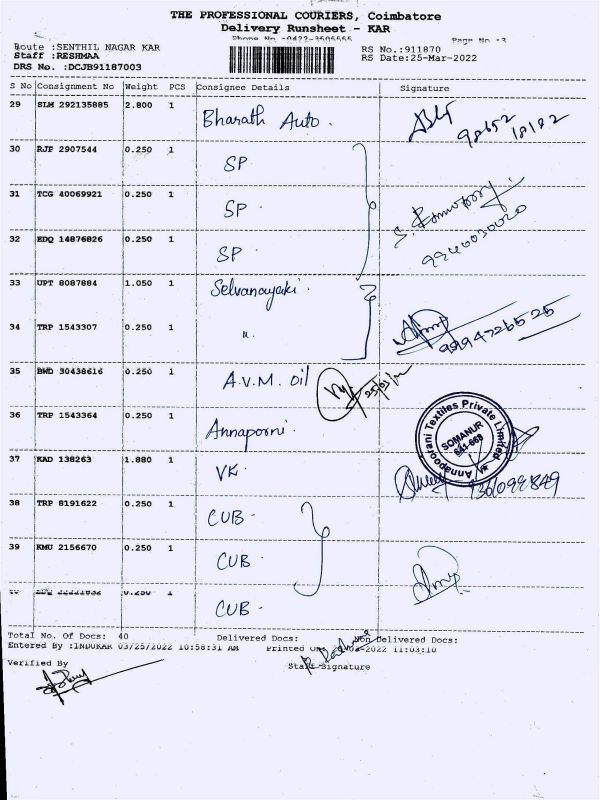 THE PROFESSIONAL COURIERS, Coimbatore
Delivery Runsheet - KAR
Phone No -0422-3505555 Page No -3
Route :SENTHIL NAGAR KAR RS No.:911870
Staff :RESHMAA RS Date:25-Mar-2022
DRS No. :DCJB91187003
S No Consignment No Weight PCS Consignee Details Signature
29 SLM 292135885 2.800 1 Bharath Auto.
98652 18182
30 RJP 2907544 0.250 1 SP
31 TCG 40069921 0.250 1 SP
32 EDQ 14876826 0.250 1 SP
9940030020
33 UPT 8087884 1.050 1 Selvanayaki
34 TRP 1543307 0.250 1 "
9994726525
35 BWD 30438616 0.250 1 A.V.M. Oil
36 TRP 1543364 0.250 1 Annaporni
Annapoorani Textiles Private Limited
SOMANUR
641-668
37 KAD 138263 1.880 1 VK
38 TRP 8191622 0.250 1 CUB
39 KMU 2156670 0.250 1 CUB
0.250 1 CUB
Total No. Of Docs: 40 Delivered Docs: Non Delivered Docs:
Entered By :INDUKAR 03/25/2022 10:58:31 AM Printed On 2022 11:03:10
Verified By Staff Signature